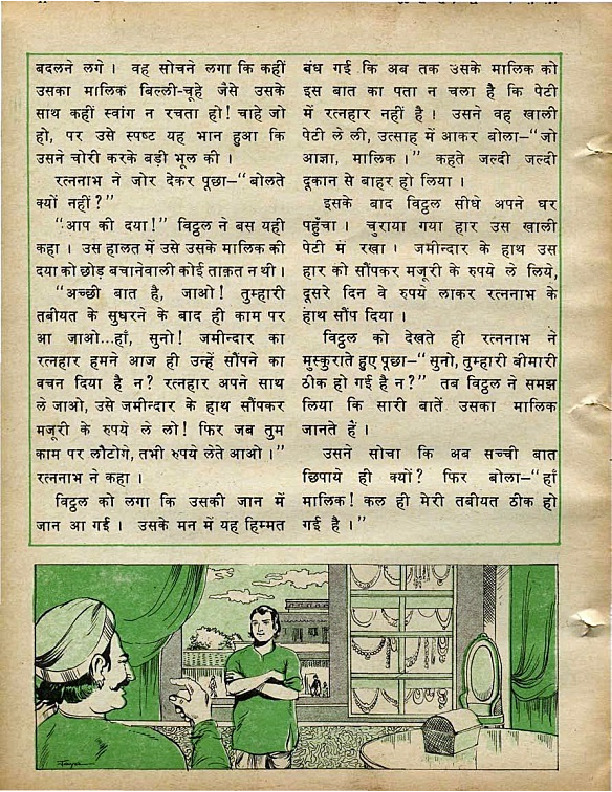 बदलने लगे । वह सोचने लगा कि कहीं
उसका मालिक बिल्ली-चूहे जैसे उसके
साथ कहीं स्वांग न रचता हो! चाहे जो
हो, पर उसे स्पष्ट यह भान हुआ कि
उसने चोरी करके बड़ी भूल की ।
रत्ननाभ ने जोर देकर पूछा–“बोलते
क्यों नहीं?”
“आप की दया!” विट्ठल ने बस यही
कहा । उस हालत में उसे उसके मालिक की
दया को छोड़ बचानेवाली कोई ताक़त न थी ।
“अच्छी बात है, जाओ! तुम्हारी
तबीयत के सुधरने के बाद ही काम पर
आ जाओ...हाँ, सुनो! जमीन्दार का
रत्नहार हमने आज ही उन्हें सौंपने का
वचन दिया है न? रत्नहार अपने साथ
ले जाओ, उसे जमीन्दार के हाथ सौंपकर
मजूरी के रुपये ले लो! फिर जब तुम
काम पर लौटोगे, तभी रुपये लेते आओ ।”
रत्ननाभ ने कहा ।
विट्ठल को लगा कि उसकी जान में
जान आ गई । उसके मन में यह हिम्मत
बंध गई कि अब तक उसके मालिक को
इस बात का पता न चला है कि पेटी
में रत्नहार नहीं है । उसने वह खाली
पेटी ले ली, उत्साह में आकर बोला–“जो
आज्ञा, मालिक ।” कहते जल्दी जल्दी
दूकान से बाहर हो लिया ।
इसके बाद विट्ठल सीधे अपने घर
पहुँचा । चुराया गया हार उस खाली
पेटी में रखा । जमीन्दार के हाथ उस
हार को सौंपकर मजूरी के रुपये ले लिये,
दूसरे दिन वे रुपये लाकर रत्ननाभ के
हाथ सौंप दिया ।
विट्ठल को देखते ही रत्ननाभ ने
मुस्कुराते हुए पूछा–“सुनो, तुम्हारी बीमारी
ठीक हो गई है न?” तब विट्ठल ने समझ
लिया कि सारी बातें उसका मालिक
जानते हैं ।
उसने सोचा कि अब सच्ची बात
छिपाये ही क्यों? फिर बोला–“हाँ
मालिक! कल ही मेरी तबीयत ठीक हो
गई है ।”